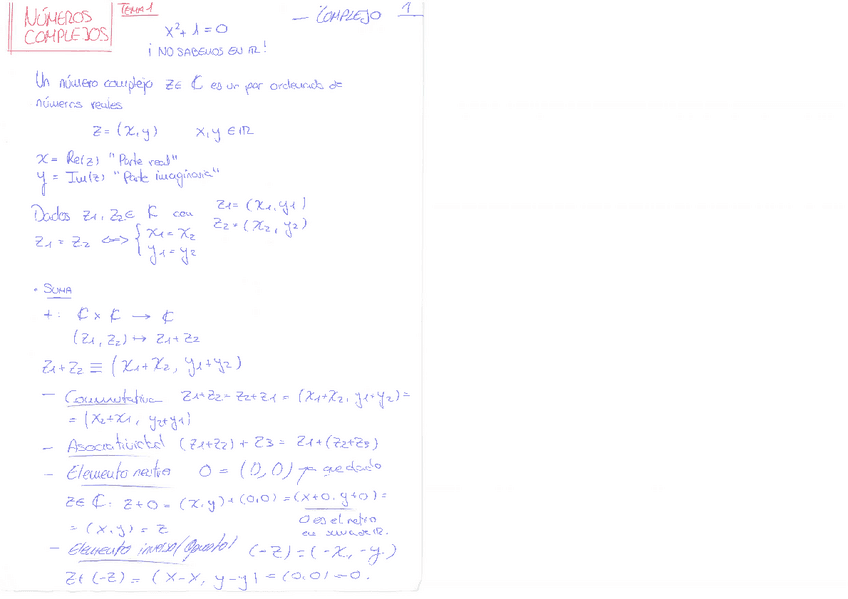 NÚMEROS COMPLEJOS
TEMA 1
— COMPLEJO 1
x²+1=0
¡NO SABEMOS EN ℝ!
Un número complejo z∈ ℂ es un par ordenado de
números reales
z=(x,y) x,y ∈ℝ
x= Re(z) "Parte real"
y = Im(z) "Parte imaginaria"
Dados z1, z2∈ ℂ con z1=(x1,y1)
z2=(x2,y2)
z1=z2 <=> { x1=x2
y1=y2
• SUMA
+: ℂ x ℂ → ℂ
(z1,z2) ↦ z1+z2
z1+z2 ≡ (x1+x2, y1+y2)
— Conmutativa z1+z2=z2+z1 = (x1+x2, y1+y2)=
= (x2+x1, y2+y1)
— Asociatividad (z1+z2)+z3= z1+(z2+z3)
— Elemento neutro 0=(0,0) ya que dado
z∈ ℂ: z+0=(x,y)+(0,0)=(x+0,y+0)=
=(x,y)=z
0 es el neutro
en suma de ℝ.
— Elemento inverso/opuesto/ (-z)=(-x,-y)
z+(-z)=(x-x, y-y)=(0,0)=0.